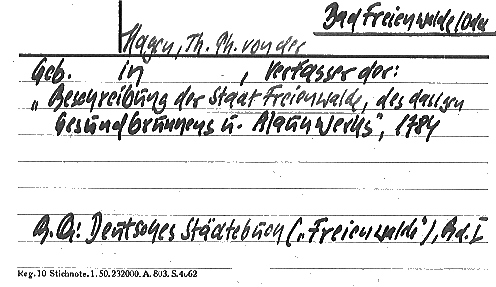 Bad Freienwalde/Oder
Hagen, Th. Ph. von der
Geb. in , Verfasser der:
„Beschreibung der Stadt Freienwalde, des dasigen
Gesundbrunnens u. Alaunwerks", 1784
B.Q: Deutsches Städtebuch („Freienwalde"), Bd. I
Reg. 10 Stichnote. 1. 50. 232000. A. 803. S. 4062